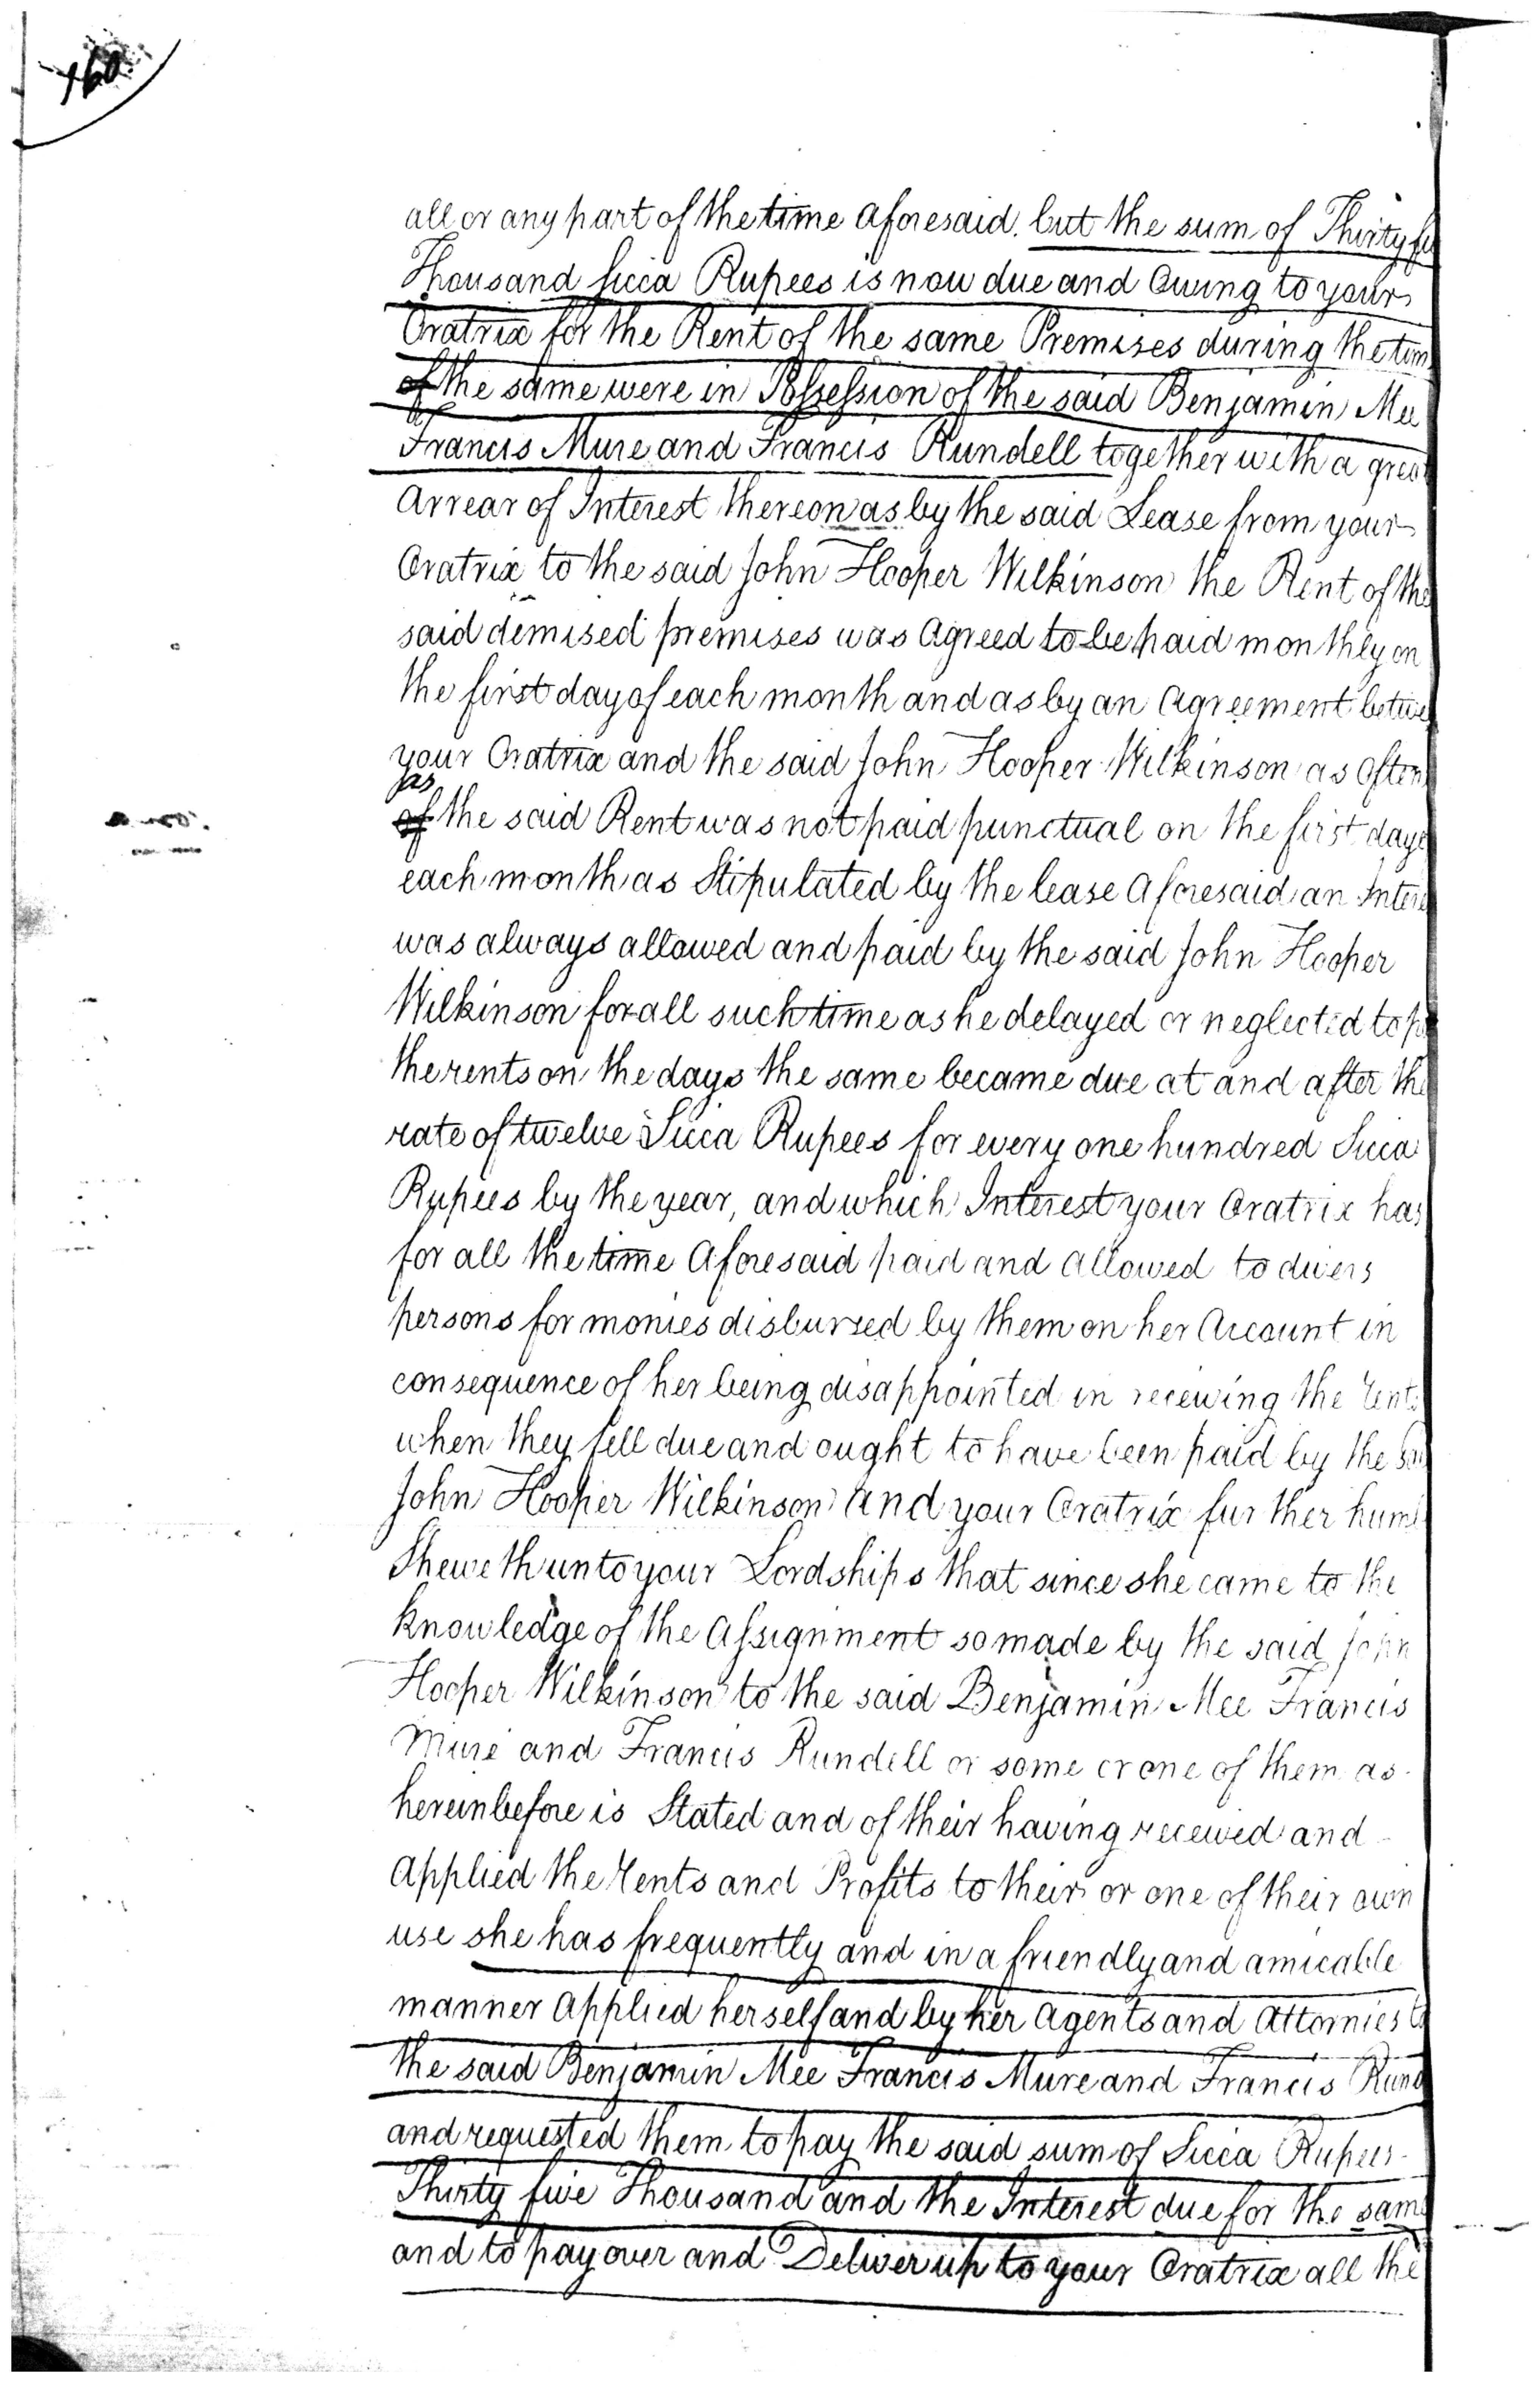 160
all or any part of the time aforesaid. but the sum of Thirty
Thousand Sicca Rupees is now due and Owing to your
Oratrix for the Rent of the same Premises during the tim
of the same were in Possession of the said Benjamin Mee
Francis Mure and Francis Rundell together with a great
Arrear of Interest thereon as by the said Lease from your
Oratrix to the said John Hooper Wilkinson the Rent of the
said demised premises was Agreed to be paid monthly on
the first day of each month and as by an Agreement betwe
your Oratrix and the said John Hooper Wilkinson as often
as
of the said Rent was not paid punctual on the first day
each month as Stipulated by the lease Aforesaid an Intere
was always allowed and paid by the said John Hooper
Wilkinson for all such time as he delayed or neglected to p
the rents on the days the same became due at and after the
rate of twelve Sicca Rupees for every one hundred Sicca
Rupees by the year, and which Interest your Oratrix has
for all the time Aforesaid paid and allowed to divers
persons for monies disbursed by them on her Account in
consequence of her being disappointed in receiving the rents
when they fell due and ought to have been paid by the
John Hooper Wilkinson And your Oratrix further hum
Sheweth unto your Lordships that since she came to the
knowledge of the Assignment so made by the said John
Hooper Wilkinson to the said Benjamin Mee Francis
Mure and Francis Rundell or some or one of them as
hereinbefore is Stated and of their having received and
Applied the rents and Profits to their or one of their own
use she has frequently and in a friendly and amicable
manner Applied herself and by her Agents and Attornies
the said Benjamin Mee Francis Mure and Francis Rund
and requested them to pay the said sum of Sicca Rupees
Thirty five Thousand and the Interest due for the same
and to pay over and Deliver up to your Oratrix all the